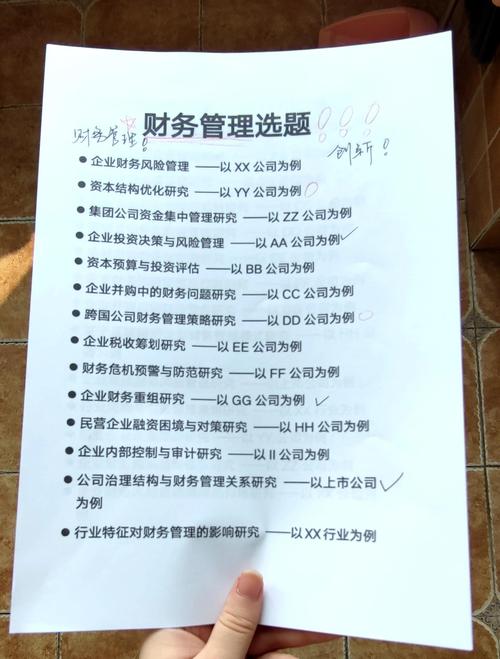 财务管理选题!!!
财务管理!
创新!
● 企业财务风险管理 ——以 XX 公司为例
● 资本结构优化研究 ——以 YY 公司为例
● 集团公司资金集中管理研究 ——以 ZZ 公司为例
● 企业投资决策与风险管理 ——以 AA 公司为例✓
● 资本预算与投资评估 ——以 BB 公司为例
● 企业并购中的财务问题研究 ——以 CC 公司为例
● 跨国公司财务管理策略研究 ——以 DD 公司为例
● 企业税收筹划研究 ——以 EE 公司为例
● 财务危机预警与防范研究 ——以 FF 公司为例
● 企业财务重组研究 ——以 GG 公司为例 ✓
● 民营企业融资困境与对策研究 ——以 HH 公司为例
● 企业内部控制与审计研究 ——以 II 公司为例
● 公司治理结构与财务管理关系研究 ——以上市公司✓
为例
● 行业特征对财务管理的影响研究 ——以 XX 行业为例